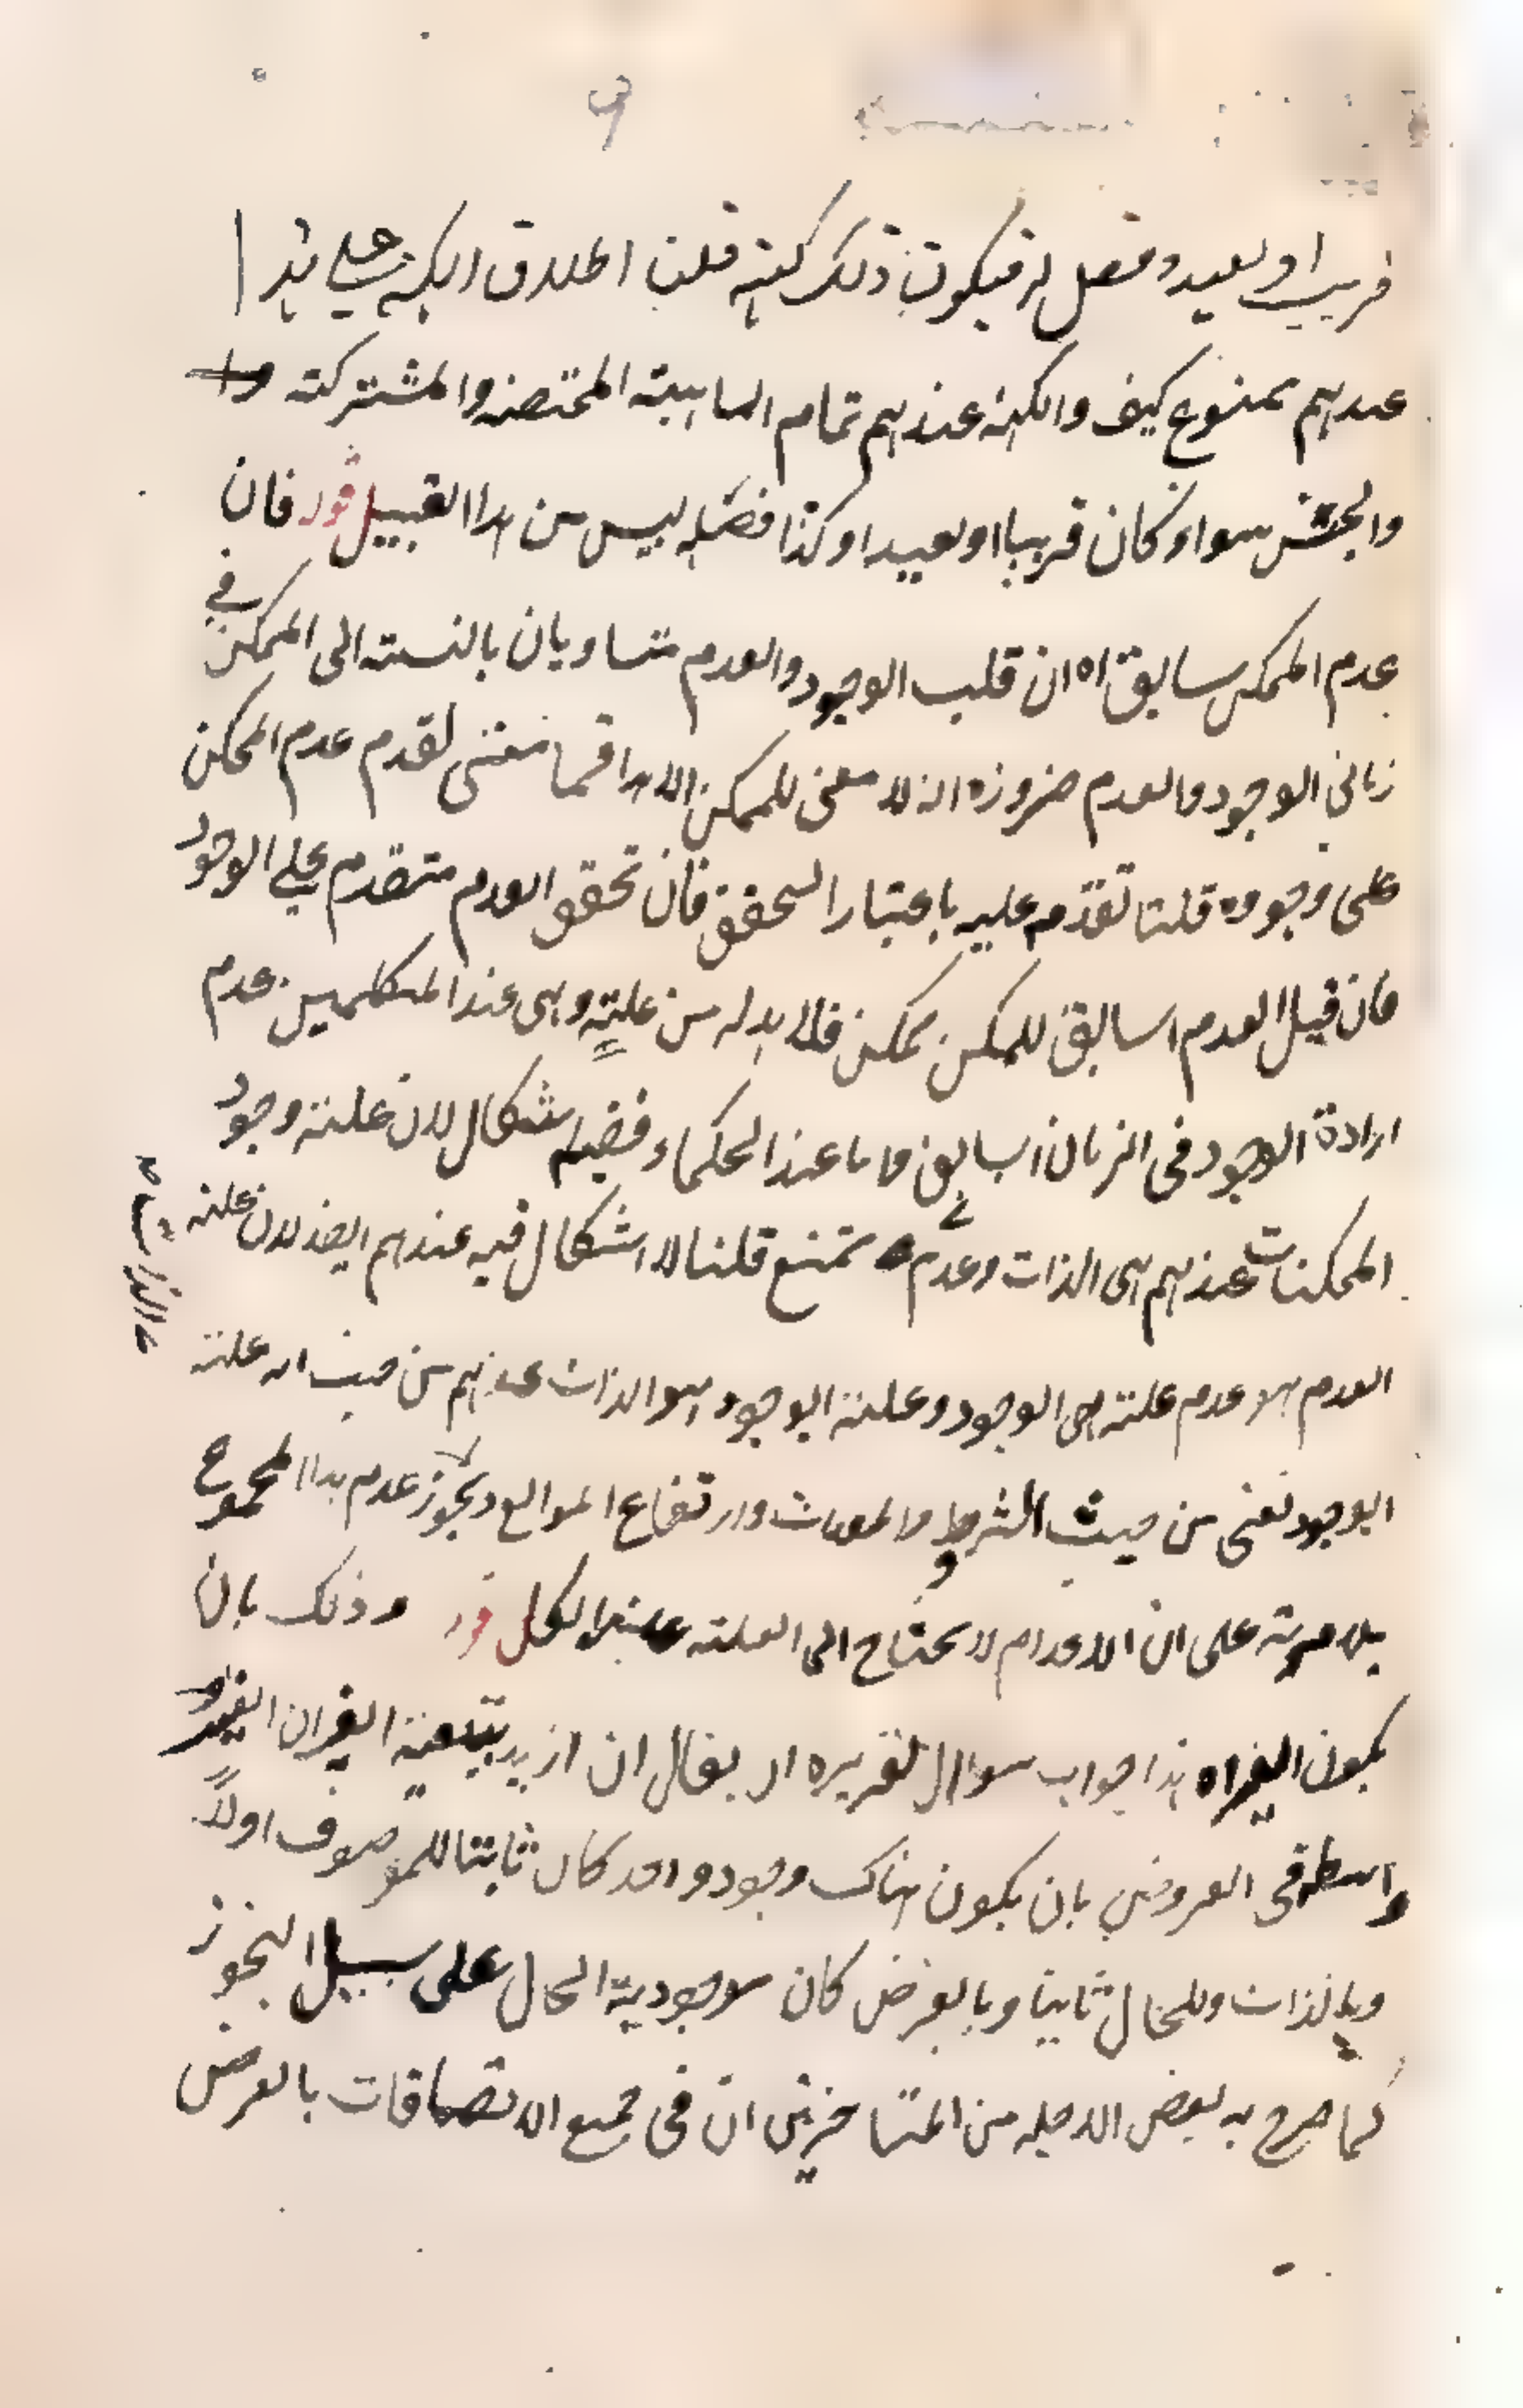 قريب او بعيد وفصل له فيكون ذلك كنهه قلنا اطلاق الكنه على هذا
عندهم ممنوع كيف والكنه عندهم تمام الماهية المختصة والمشتركة
والجنس سواء كان قريبا او بعيدا وكذا فصله ليس من هذا القبيل قوله فان
عدم الممكن سابق اه ان قلت الوجود والعدم متساويان بالنسبة الى الممكن في
زماني الوجود والعدم ضرورة انه لا معنى للممكن الا هذا فما معنى لقدم عدم الممكن
على وجوده قلنا تقدمه عليه باعتبار التحقق فان تحقق العدم متقدم على الوجود
فان قيل العدم السابق للممكن ممكن فلا بد له من علته وهى عند المتكلمين عدم
ارادة الوجود فى الزمان السابق واما عند الحكماء ففيه اشكال لان علته وجود
الممكنات عندهم هى الذات وعدمه ممتنع قلنا لا اشكال فيه عندهم ايضا لان علته
العدم هو عدم علته هى الوجود وعلته الوجود هو الذات عندهم من حيث انه علته
الوجود نعنى من حيث الشروط والمعدات وارتفاع الموانع ويجوز عدم هذا المجموع
بلا مرية على ان الاعدام لا يحتاج الى العلته عند الكل قوله وذلك بان
يكون الغير اه هذا جواب سوال تقريره ان يقال ان اريد بتبعية الغير ان الغير
واسطة فى العروض بان يكون هناك وجود واحد كان ثابتا للموصوف اولاً
وبالذات وللحال ثانيا وبالعرض كان موجودية الحال على سبيل التجوز
كما صرح به بعض الاجله من المتاخرين ان فى جميع الاتصافات بالعرض